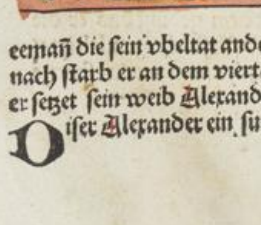 eemañ die sein vbeltat and
nach starb er an dem viert
er setzet sein weib Alexand
Diser Alexander ein su